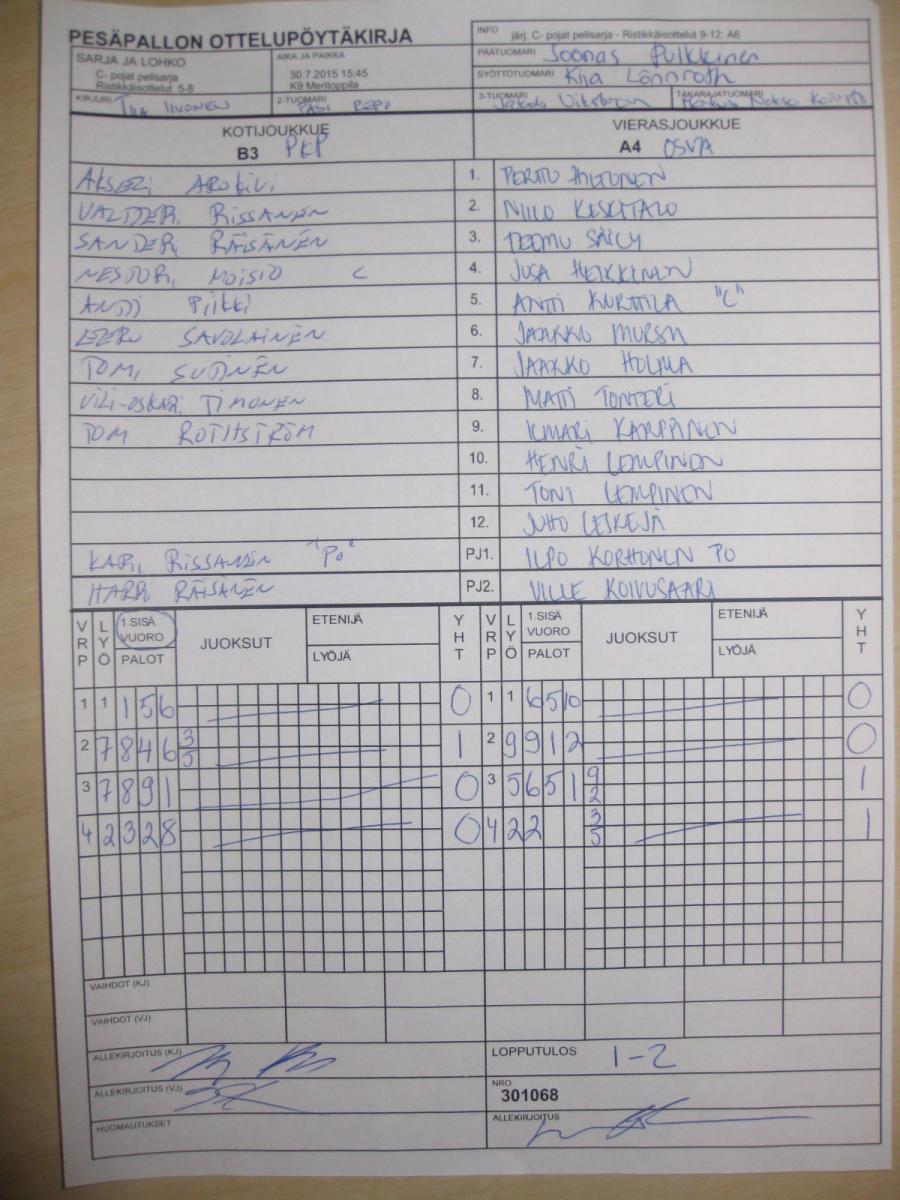 PESÄPALLON OTTELUPÖYTÄKIRJA
INFO järj. C- pojat pelisarja - Ristikkäisottelut 9-12: A6
SARJA JA LOHKO
C- pojat pelisarja
Ristikkäisottelut 5-8
AIKA JA PAIKKA
30.7.2015 15:45
K9 Meritoppila
PÄÄTUOMARI Joonas Pulkkinen
SYÖTTÖTUOMARI Kiia Lönnroth
KIRJURI TIIA IIVONEN
2-TUOMARI PASI REPO
3-TUOMARI
TAKARAJATUOMARI
KOTIJOUKKUE
B3 PKP
VIERASJOUKKUE
A4 OSVA
AKSELI AROKIVI 1. PERTTU HILTUNEN
VALTTERI RISSANEN 2. NIILO KESKITALO
SANTERI RÄISÄNEN 3. TEEMU SÄILY
NESTORI MOISIO C 4. JUSA HEIKKINEN
ANTTI PIIKKI 5. ANTTI KURTTILA "C"
EERO SAVOLAINEN 6. JAAKKO MURSU
TOMI SUTINEN 7. JAAKKO HOLMA
VILI-OSKARI TIMONEN 8. MATTI TONTERI
TOM ROTHSTRÖM 9. ILMARI KARPPINEN
10. HENRI LEMPINEN
11. TONI LEMPINEN
12. JUHO LESKELÄ
KARI RISSANEN "PJ" PJ1. ILPO KORHONEN PJ
HARRI RÄISÄNEN PJ2. VILLE KOIVUSAARI
VRP LYÖ 1.SISÄ VUORO PALOT JUOKSUT ETENIJÄ LYÖJÄ YHT VRP LYÖ 1.SISÄ VUORO PALOT JUOKSUT ETENIJÄ LYÖJÄ YHT
1 1 1 5 6 0 1 1 6 5 10 0
2 7 8 4 6 3/5 1 2 9 9 1 2 0
3 7 8 9 1 0 3 5 6 5 1 9/2 1
4 2 3 2 8 0 4 2 2 3/5 1
VAIHDOT (KJ)
VAIHDOT (VJ)
ALLEKIRJOITUS (KJ)
LOPPUTULOS 1-2
ALLEKIRJOITUS (VJ)
NRO
301068
HUOMAUTUKSET
ALLEKIRJOITUS